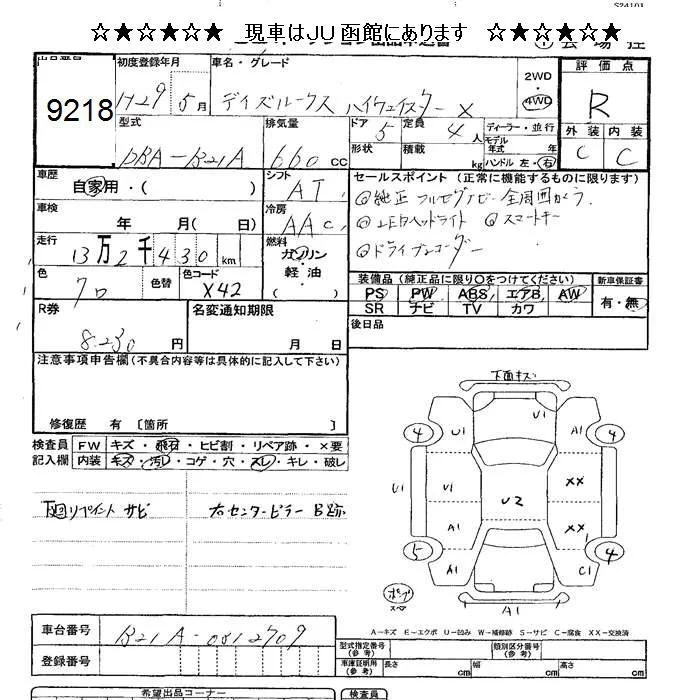 S24101
☆★☆★☆★☆ 現車はJU函館にあります ☆★☆★☆★☆
会場控
出品番号
初度登録年月
車名・グレード
評価点
9218
H29 5月
デイズルークス ハイウェイスター X
2WD
・
4WD
R
型式
排気量
ドア
定員
ディーラー・並行
外装
内装
DBA-B21A
660 CC
5
4人
モデル年式 年
形状
積載
kg
ハンドル 左・右
C
C
車歴
シフト
セールスポイント(正常に機能するものに限ります)
自家用・( )
AT
◎純正フルセグナビ 全周囲カメラ
車検
冷房
◎LEDヘッドライト ◎スマートキー
年 月( 日)
AAC
◎ドライブレコーダー
走行
燃料
13万2千430 km
ガソリン・軽油・( )
装備品(純正品に限り○をつけてください)
新車保証書
色
色替
色コード
クロ
X42
PS PW ABS エアB AW
有・無
SR ナビ TV カワ
R券
名変通知期限
後日品
8.230円
月 日
注意事項申告欄(不具合内容等は具体的に記入して下さい)
修復歴 有 〔箇所 〕
下面キズ
検査員記入欄
FW キズ・飛石・ヒビ割・リペア跡・×要
内装 キズ・汚レ・コゲ・穴・スレ・キレ・破レ
4 U1 U1 A1 4
U1 U1 U2 XX
A1 XX 1
下廻リペイント サビ
右センターピラー B跡
5 A1 C1 4
A1
A-キズ E-エクボ U-凹み W-補修跡 S-サビ C-腐食 XX-交換済
車台番号
B21A-0312709
型式指定番号(参考)
類別区分番号(参考)
登録番号
車庫証明用(参考)
長さ cm
幅 cm
高さ cm
希望出品コーナー
検査員